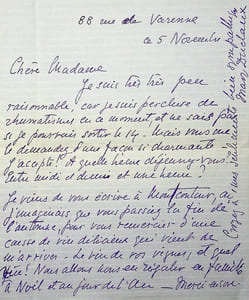 88 rue de Varenne
ce 5 Novembre
Chère Madame
Je suis très très peu
raisonnable, car je suis percluse de
rhumatismes en ce moment, et ne sais pas
si je pourrais sortir le 14. Mais vous me
le demandez d'une façon si charmante
J'accepte! A quelle heure déjeunez-vous?
Entre midi et demie et une heure?
Je viens de vous écrire à Montcontour, où
j'imaginais que vous passiez la fin de
l'automne, pour vous remercier d'une
caisse de vin délicieux qui vient de
m'arriver. Le vin de vos vignes, et quel
vin! Nous allons nous en régaler en famille
à Noël et au jour de l'An — Merci encore
Croyez à mes sentiments bien sympathiques
Mary Duclaux